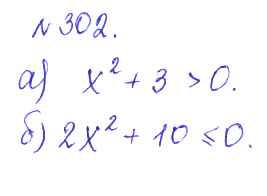 №302.
а) x² + 3 > 0.
б) 2x² + 10 ≤ 0.